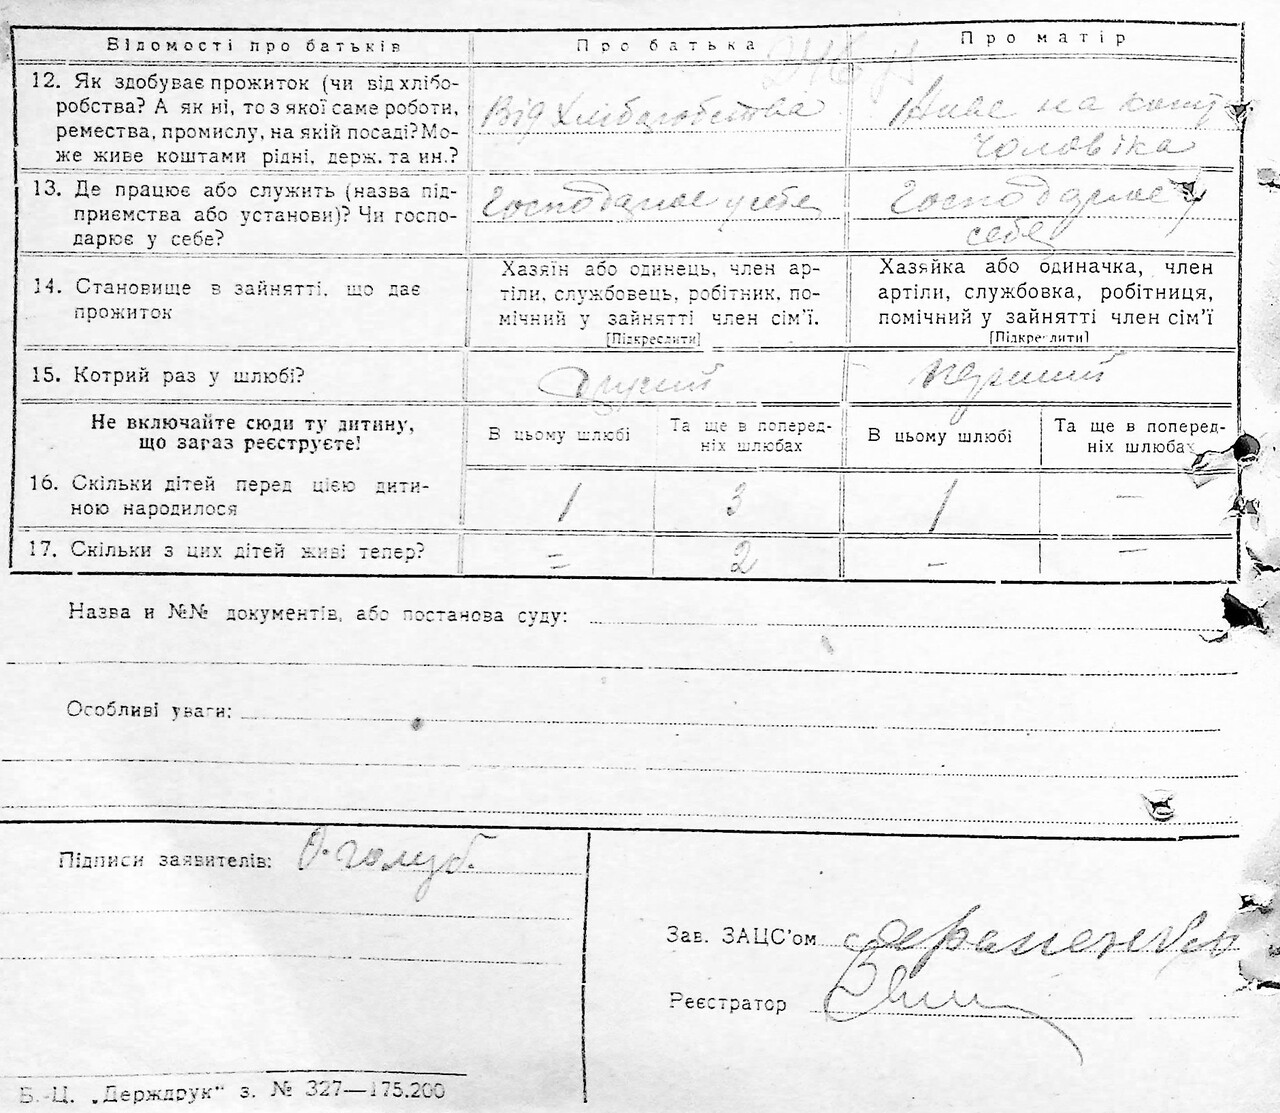 Відомості про батьків
Про батька
Про матір
12. Як здобуває прожиток (чи від хлібо-
робства? А як ні, то з якої саме роботи,
ремества, промислу, на якій посаді? Мо-
же живе коштами рідні, держ. та ин.?
Від хліборобства
Живе на кошт
чоловіка
13. Де працює або служить (назва під-
приємства або установи)? Чи госпо-
дарює у себе?
Господарює у себе
Господарює у
себе
14. Становище в зайнятті, що дає
прожиток
Хазяїн або одинець, член ар-
тіли, службовець, робітник, по-
мічний у зайнятті член сім’ї.
[Підкреслити]
Хазяйка або одиначка, член
артіли, службовка, робітниця,
помічний у зайнятті член сім’ї
[Підкреслити]
15. Котрий раз у шлюбі?
другий
перший
Не включайте сюди ту дитину,
що зараз реєструєте!
В цьому шлюбі
Та ще в поперед-
ніх шлюбах
В цьому шлюбі
Та ще в поперед-
ніх шлюбах
16. Скільки дітей перед цією дити-
ною народилося
1
3
1
—
17. Скільки з цих дітей живі тепер?
=
2
–
—
Назва и №№ документів, або постанова суду:
Особливі уваги:
Підписи заявителів: О. Голуб.
Зав. ЗАЦС’ом
Реєстратор
Б.-Ц. „Держдрук“ з. № 327—175.200